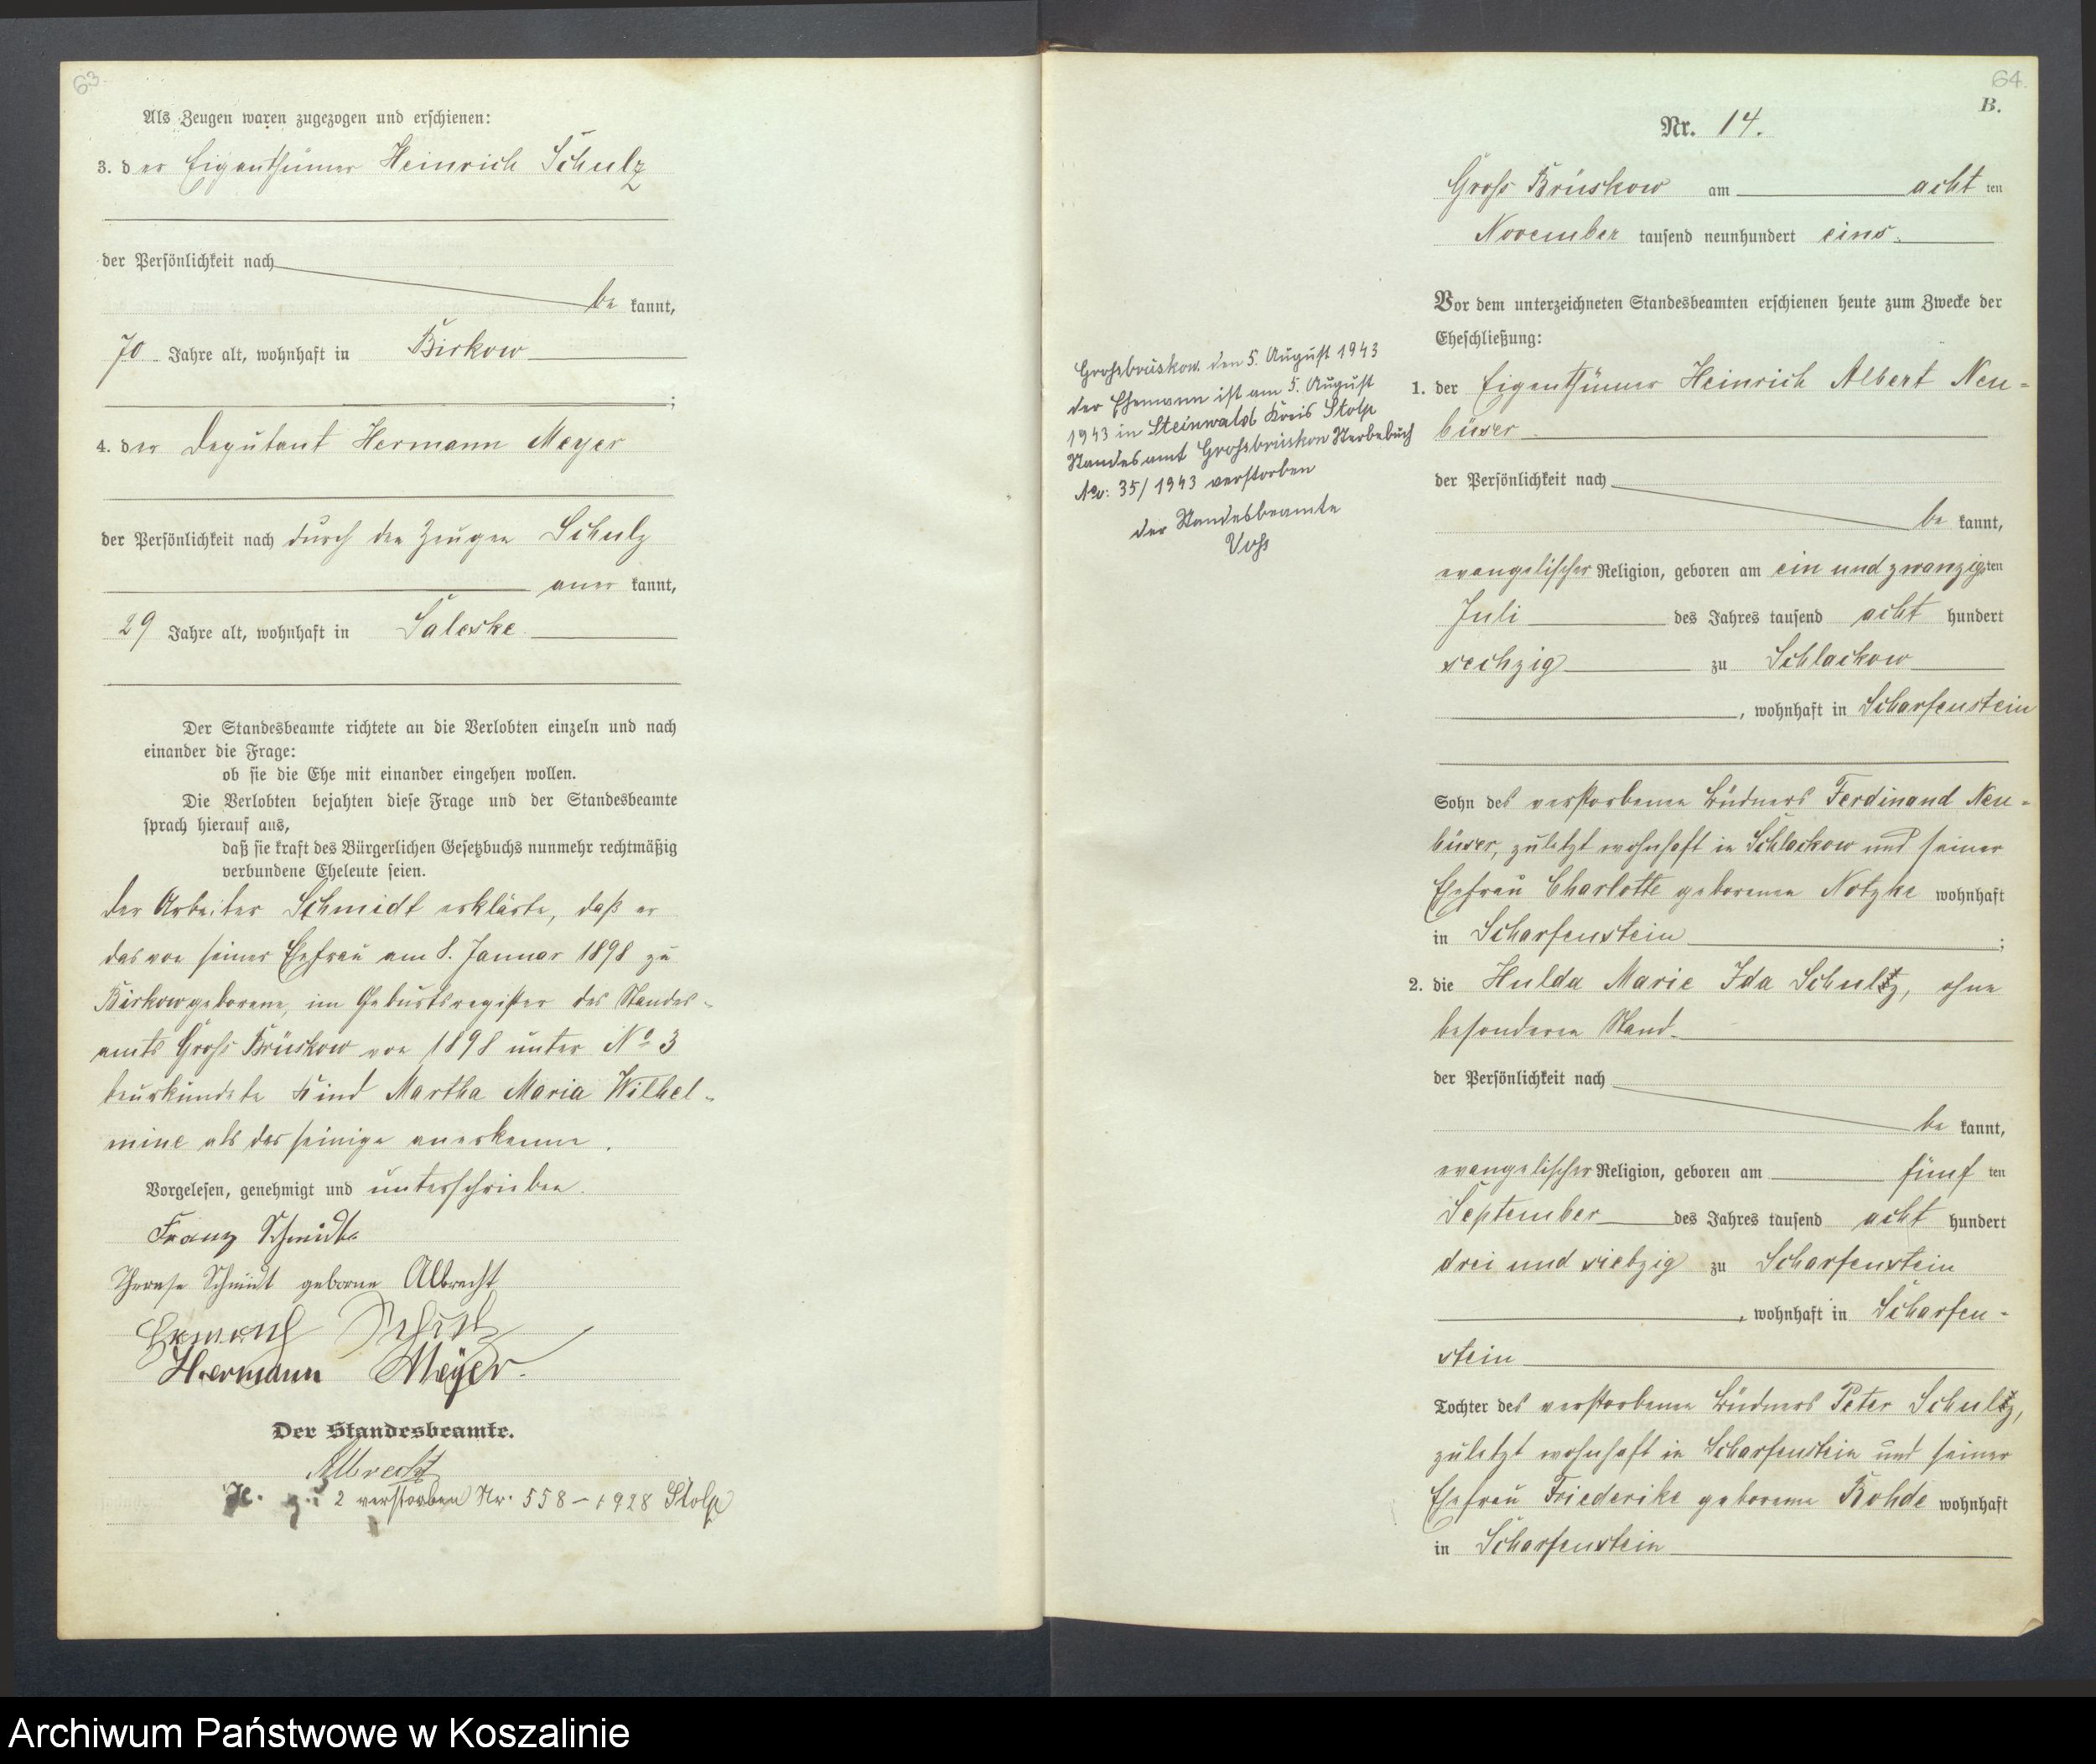 63.
Als Zeugen waren zugezogen und erschienen:
3. der Eigenthümer Heinrich Schulz
der Persönlichkeit nach
be kannt,
70 Jahre alt, wohnhaft in Birkow
;
4. der Deputant Hermann Meyer
der Persönlichkeit nach durch den Zeugen Schulz
aner kannt,
29 Jahre alt, wohnhaft in Saleske
Der Standesbeamte richtete an die Verlobten einzeln und nach
einander die Frage:
ob sie die Ehe mit einander eingehen wollen.
Die Verlobten bejahten diese Frage und der Standesbeamte
sprach hierauf aus,
daß sie kraft des Bürgerlichen Gesetzbuchs nunmehr rechtmäßig
verbundene Eheleute seien.
Der Arbeiter Schmidt erklärte, daß er
das von seiner Ehefrau am 8. Januar 1898 zu
Birkow geborene, im Geburtsregister des Standes-
amts Groß Brüskow von 1898 unter No 3
beurkundete Kind Martha Maria Wilhel-
mine als das seinige anerkenne.
Vorgelesen, genehmigt und unterschrieben.
Franz Schmidt
Therese Schmidt geborne Albrecht
Schulz
Hermann Meyer.
Der Standesbeamte.
Albrecht
2 verstorben Nr. 558 – 1928 Stolp
64.
B.
Nr. 14.
Gross Brüskow am acht ten
November tausend neunhundert eins.
Vor dem unterzeichneten Standesbeamten erschienen heute zum Zwecke der
Eheschließung:
1. der Eigenthümer Heinrich Albert Neu-
büser
der Persönlichkeit nach
be kannt,
evangelischer Religion, geboren am ein und zwanzigsten
Juli des Jahres tausend acht hundert
sechzig zu Schlackow
, wohnhaft in Scharfenstein
Sohn des verstorbenen Büdners Ferdinand Neu-
büser, zuletzt wohnhaft in Schlackow und seiner
Ehefrau Charlotte geborenen Notzke wohnhaft
in Scharfenstein ;
2. die Hulda Marie Ida Schultz, ohne
besonderen Stand.
der Persönlichkeit nach
be kannt,
evangelischer Religion, geboren am fünf ten
September des Jahres tausend acht hundert
drei und siebzig zu Scharfenstein
, wohnhaft in Scharfen-
stein
Tochter des verstorbenen Büdners Peter Schultz,
zuletzt wohnhaft in Scharfenstein und seiner
Ehefrau Friederike geborenen Rohde wohnhaft
in Scharfenstein
Großbrüskow. den 5. August 1943
der Ehemann ist am 5. August
1943 in Steinwald Kreis Stolp
Standesamt Großbrüskow Sterbebuch
Nr: 35/1943 verstorben
der Standesbeamte
Voß
Archiwum Państwowe w Koszalinie